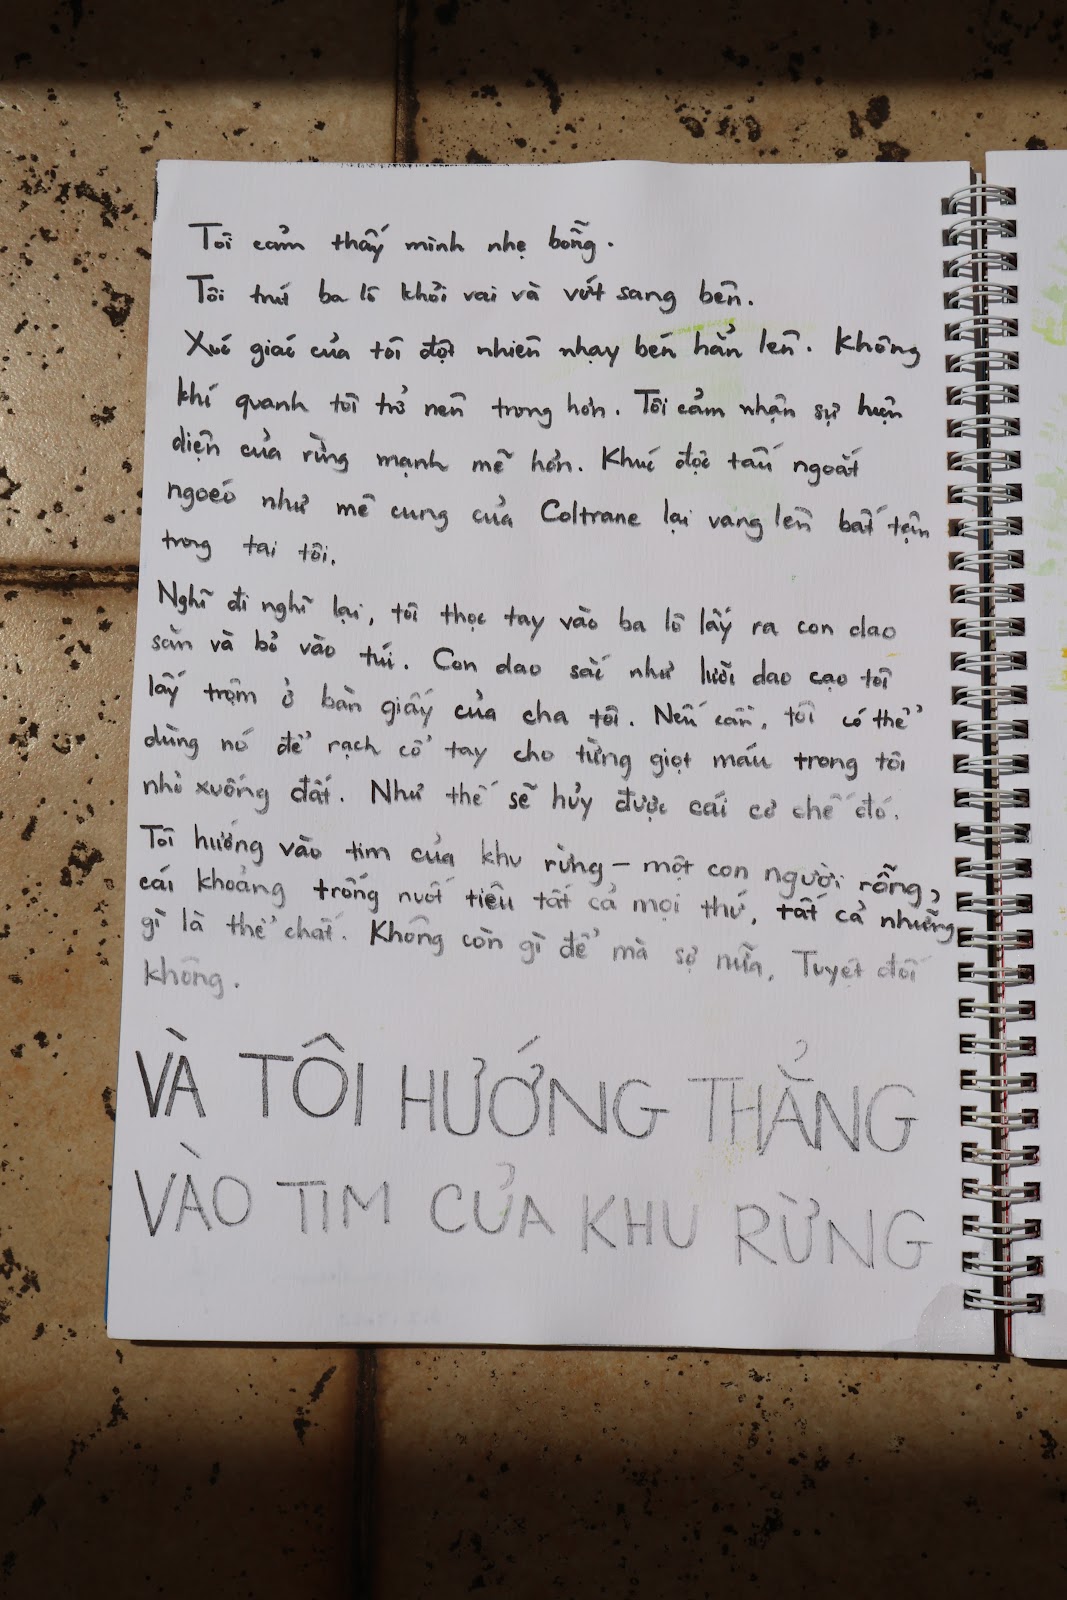 Tôi cảm thấy mình nhẹ bỗng.
Tôi trút ba lô khỏi vai và vứt sang bên.
Xúc giác của tôi đột nhiên nhạy bén hẳn lên. Không
khí quanh tôi trở nên trong hơn. Tôi cảm nhận sự hiện
diện của rừng mạnh mẽ hơn. Khúc độc tấu ngoắt
ngoéo như mê cung của Coltrane lại vang lên bất tận
trong tai tôi.
Nghĩ đi nghĩ lại, tôi thọc tay vào ba lô lấy ra con dao
săn và bỏ vào túi. Con dao sắc như lưỡi dao cạo tôi
lấy trộm ở bàn giấy của cha tôi. Nếu cần, tôi có thể
dùng nó để rạch cổ tay cho từng giọt máu trong tôi
nhỏ xuống đất. Như thế sẽ hủy được cái cơ chế đó.
Tôi hướng vào tim của khu rừng – một con người rỗng,
cái khoảng trống nuốt tiêu tất cả mọi thứ, tất cả những
gì là thể chất. Không còn gì để mà sợ nữa, Tuyệt đối
không.
VÀ TÔI HƯỚNG THẲNG
VÀO TIM CỦA KHU RỪNG